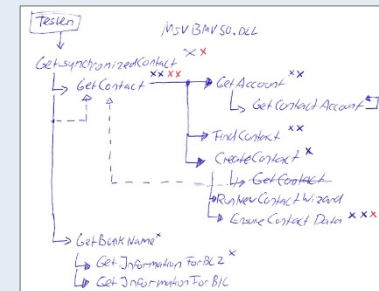 Testen
MSVBMV50.DLL
x x
GetSynchronizedContact
GetContact xx xx
GetAccount xx
GetContactAccount
FindContact xx
CreateContact x
GetContact
RunNewContactWizard
Ensure Contact Data xxx
GetBankName x
Get Information For BLZ x
Get Information For BIC